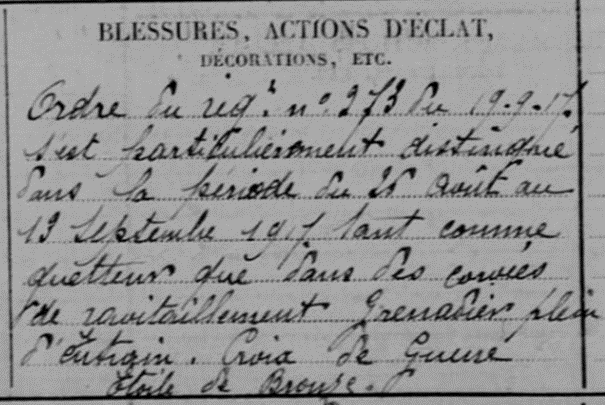 BLESSURES, ACTIONS D'ÉCLAT,
DÉCORATIONS, ETC.
Ordre du régt nº 273 du 19-9-17.
s'est particulièrement distingué
dans la période du 26 Août au
13 Septembre 1917 tant comme
guetteur que dans des corvées
de ravitaillement Grenadier plein
d'entrain. Croix de Guerre
Etoile de Bronze.